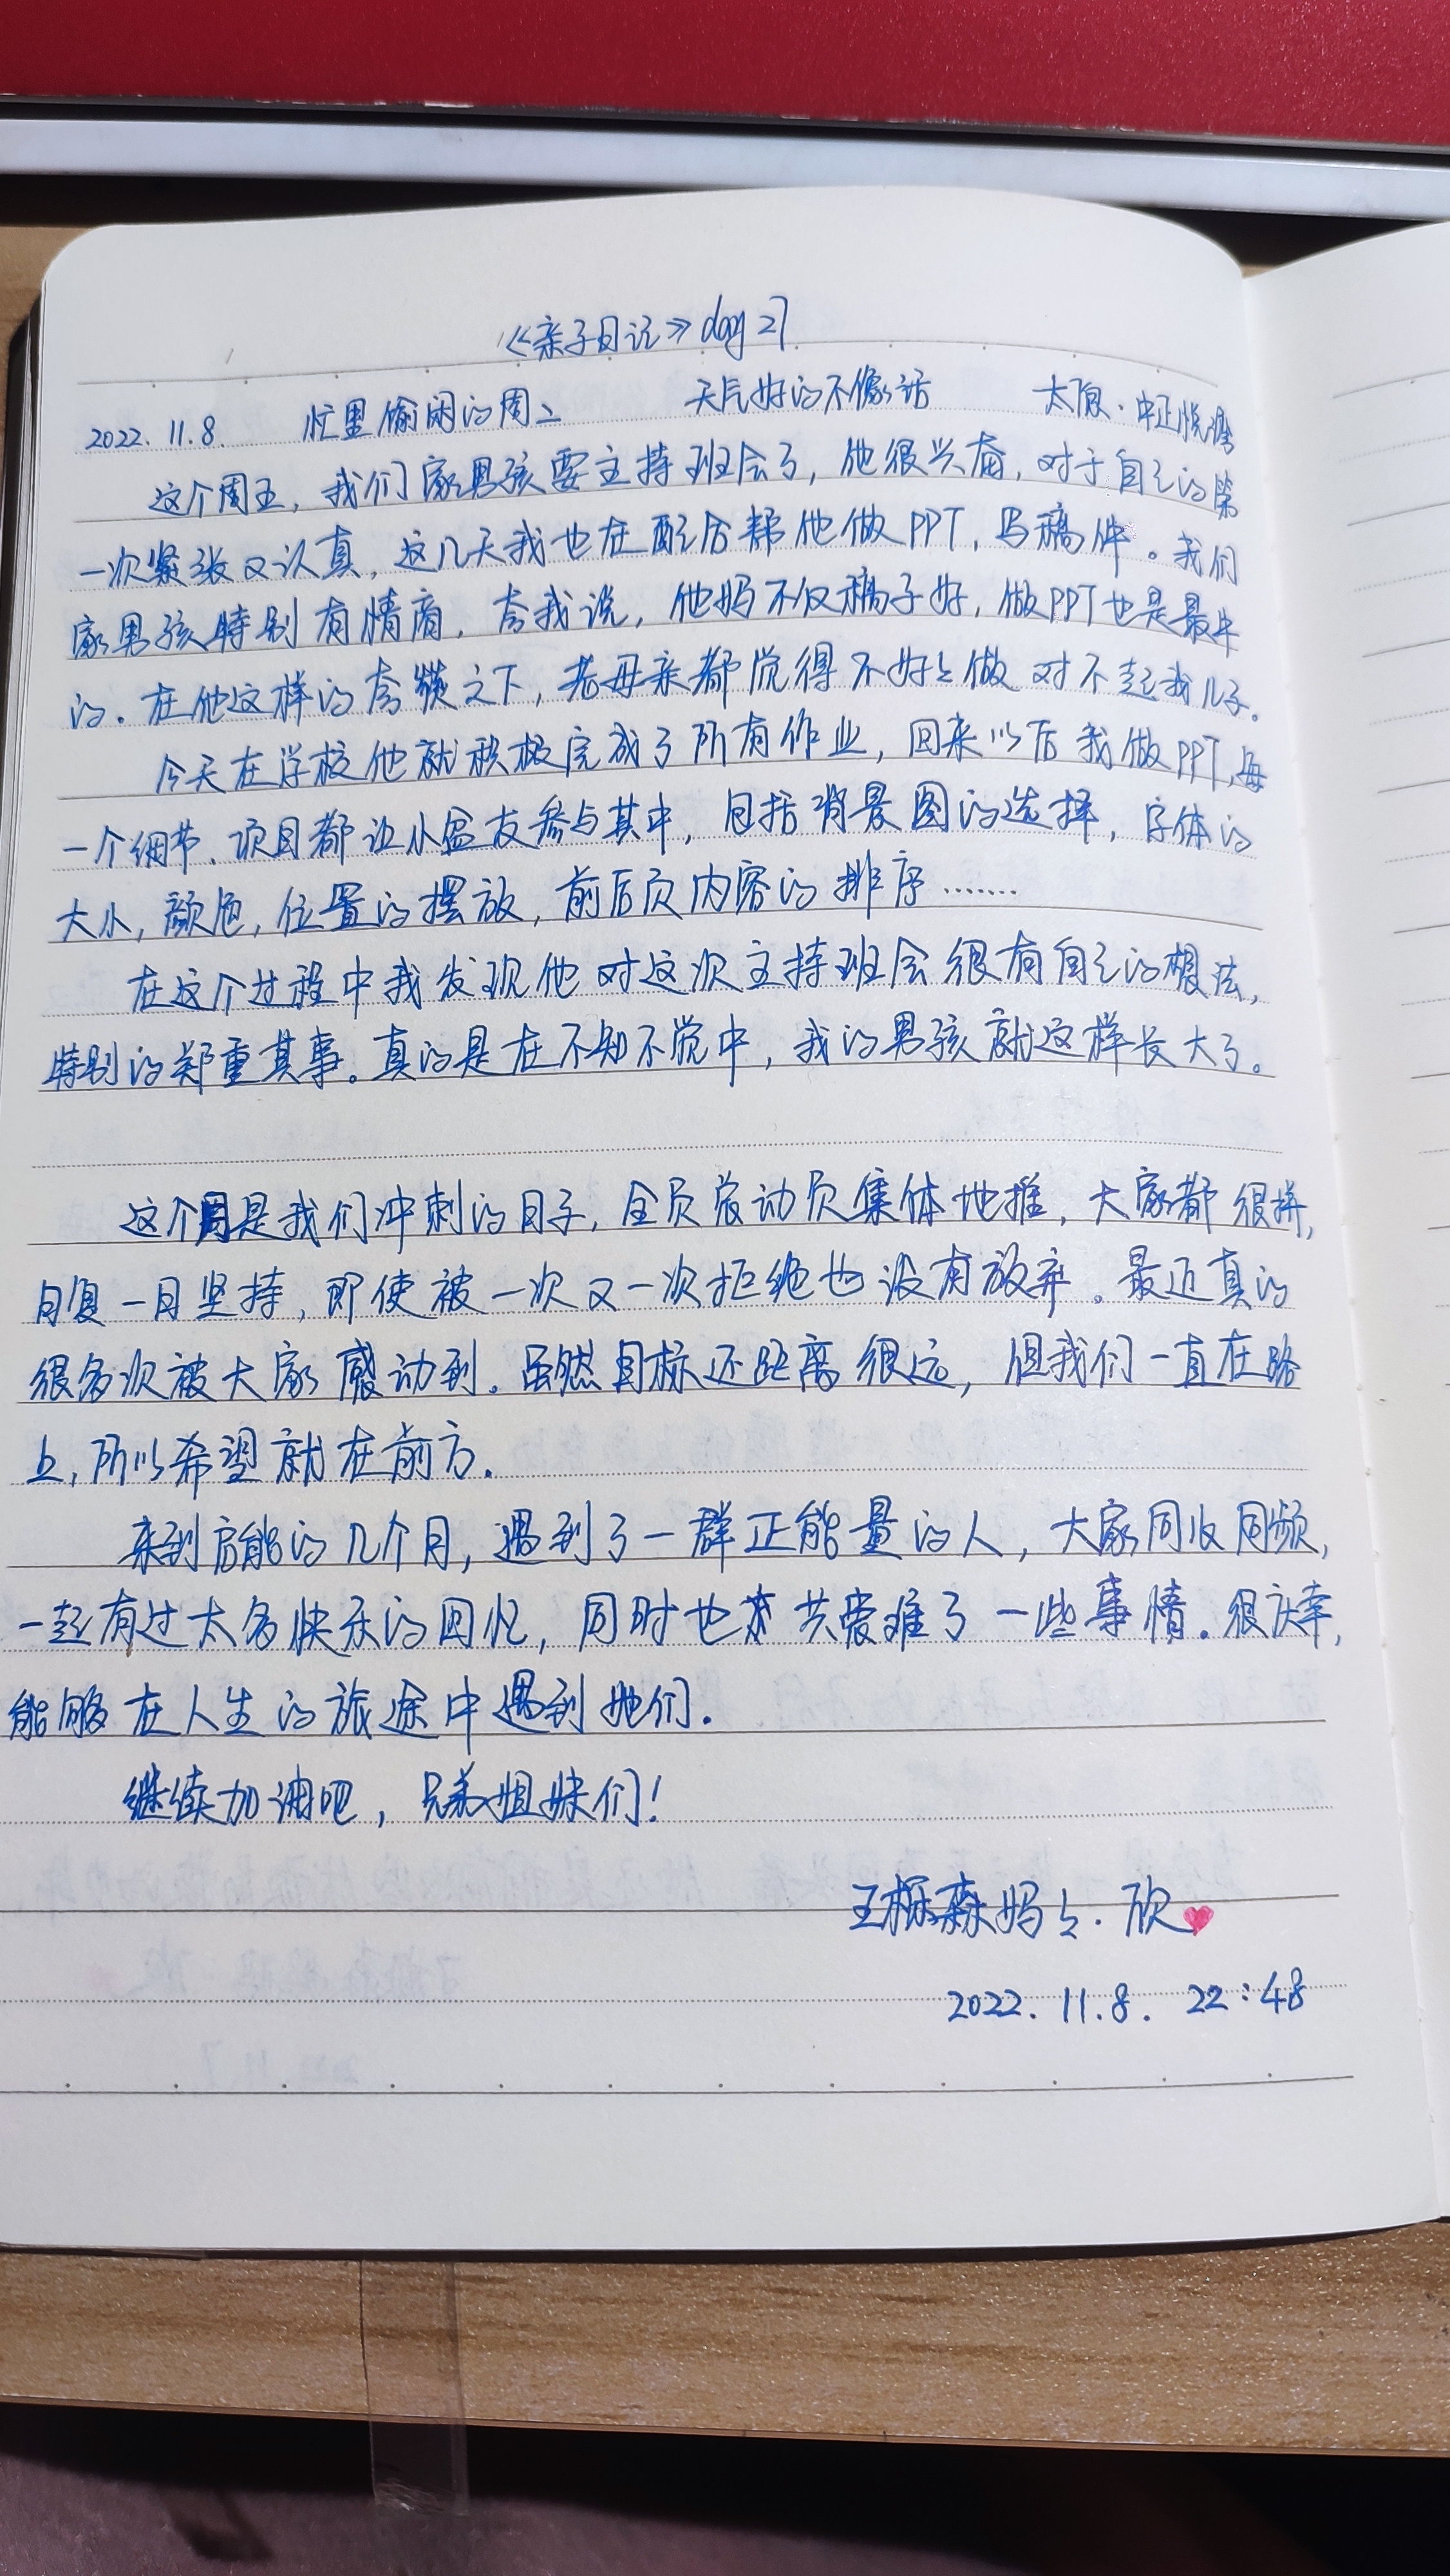 《亲子日记》day 27
2022.11.8. 忙里偷闲的周二 天气好的不像话 太原·中正悦湾
这个周五，我们家男孩要主持班会了，他很兴奋，对于自己的第
一次紧张又认真，这几天我也在配合帮他做PPT，写稿件。我们
家男孩特别有情商，夸我说，他妈不仅稿子好，做PPT也是最牛
的。在他这样的夸赞之下，老母亲都觉得不好好做对不起我儿子。
今天在学校他就积极完成了所有作业，回来以后我做PPT，每
一个细节、项目都让小盆友参与其中，包括背景图的选择，字体的
大小，颜色，位置的摆放，前后页内容的排序.......
在这个过程中我发现他对这次主持班会很有自己的想法，
特别的郑重其事。真的是在不知不觉中，我的男孩就这样长大了。
这个周是我们冲刺的日子，全员发动员集体地推，大家都很拼，
日复一日坚持，即使被一次又一次拒绝也没有放弃。最近真的
很多次被大家感动到。虽然目标还距离很远，但我们一直在路
上，所以希望就在前方。
来到启能的几个月，遇到了一群正能量的人，大家同心同频，
一起有过太多快乐的回忆，同时也共受难了一些事情。很庆幸，
能够在人生的旅途中遇到她们。
继续加油吧，兄弟姐妹们！
王栎森妈妈·欣
2022.11.8. 22:48